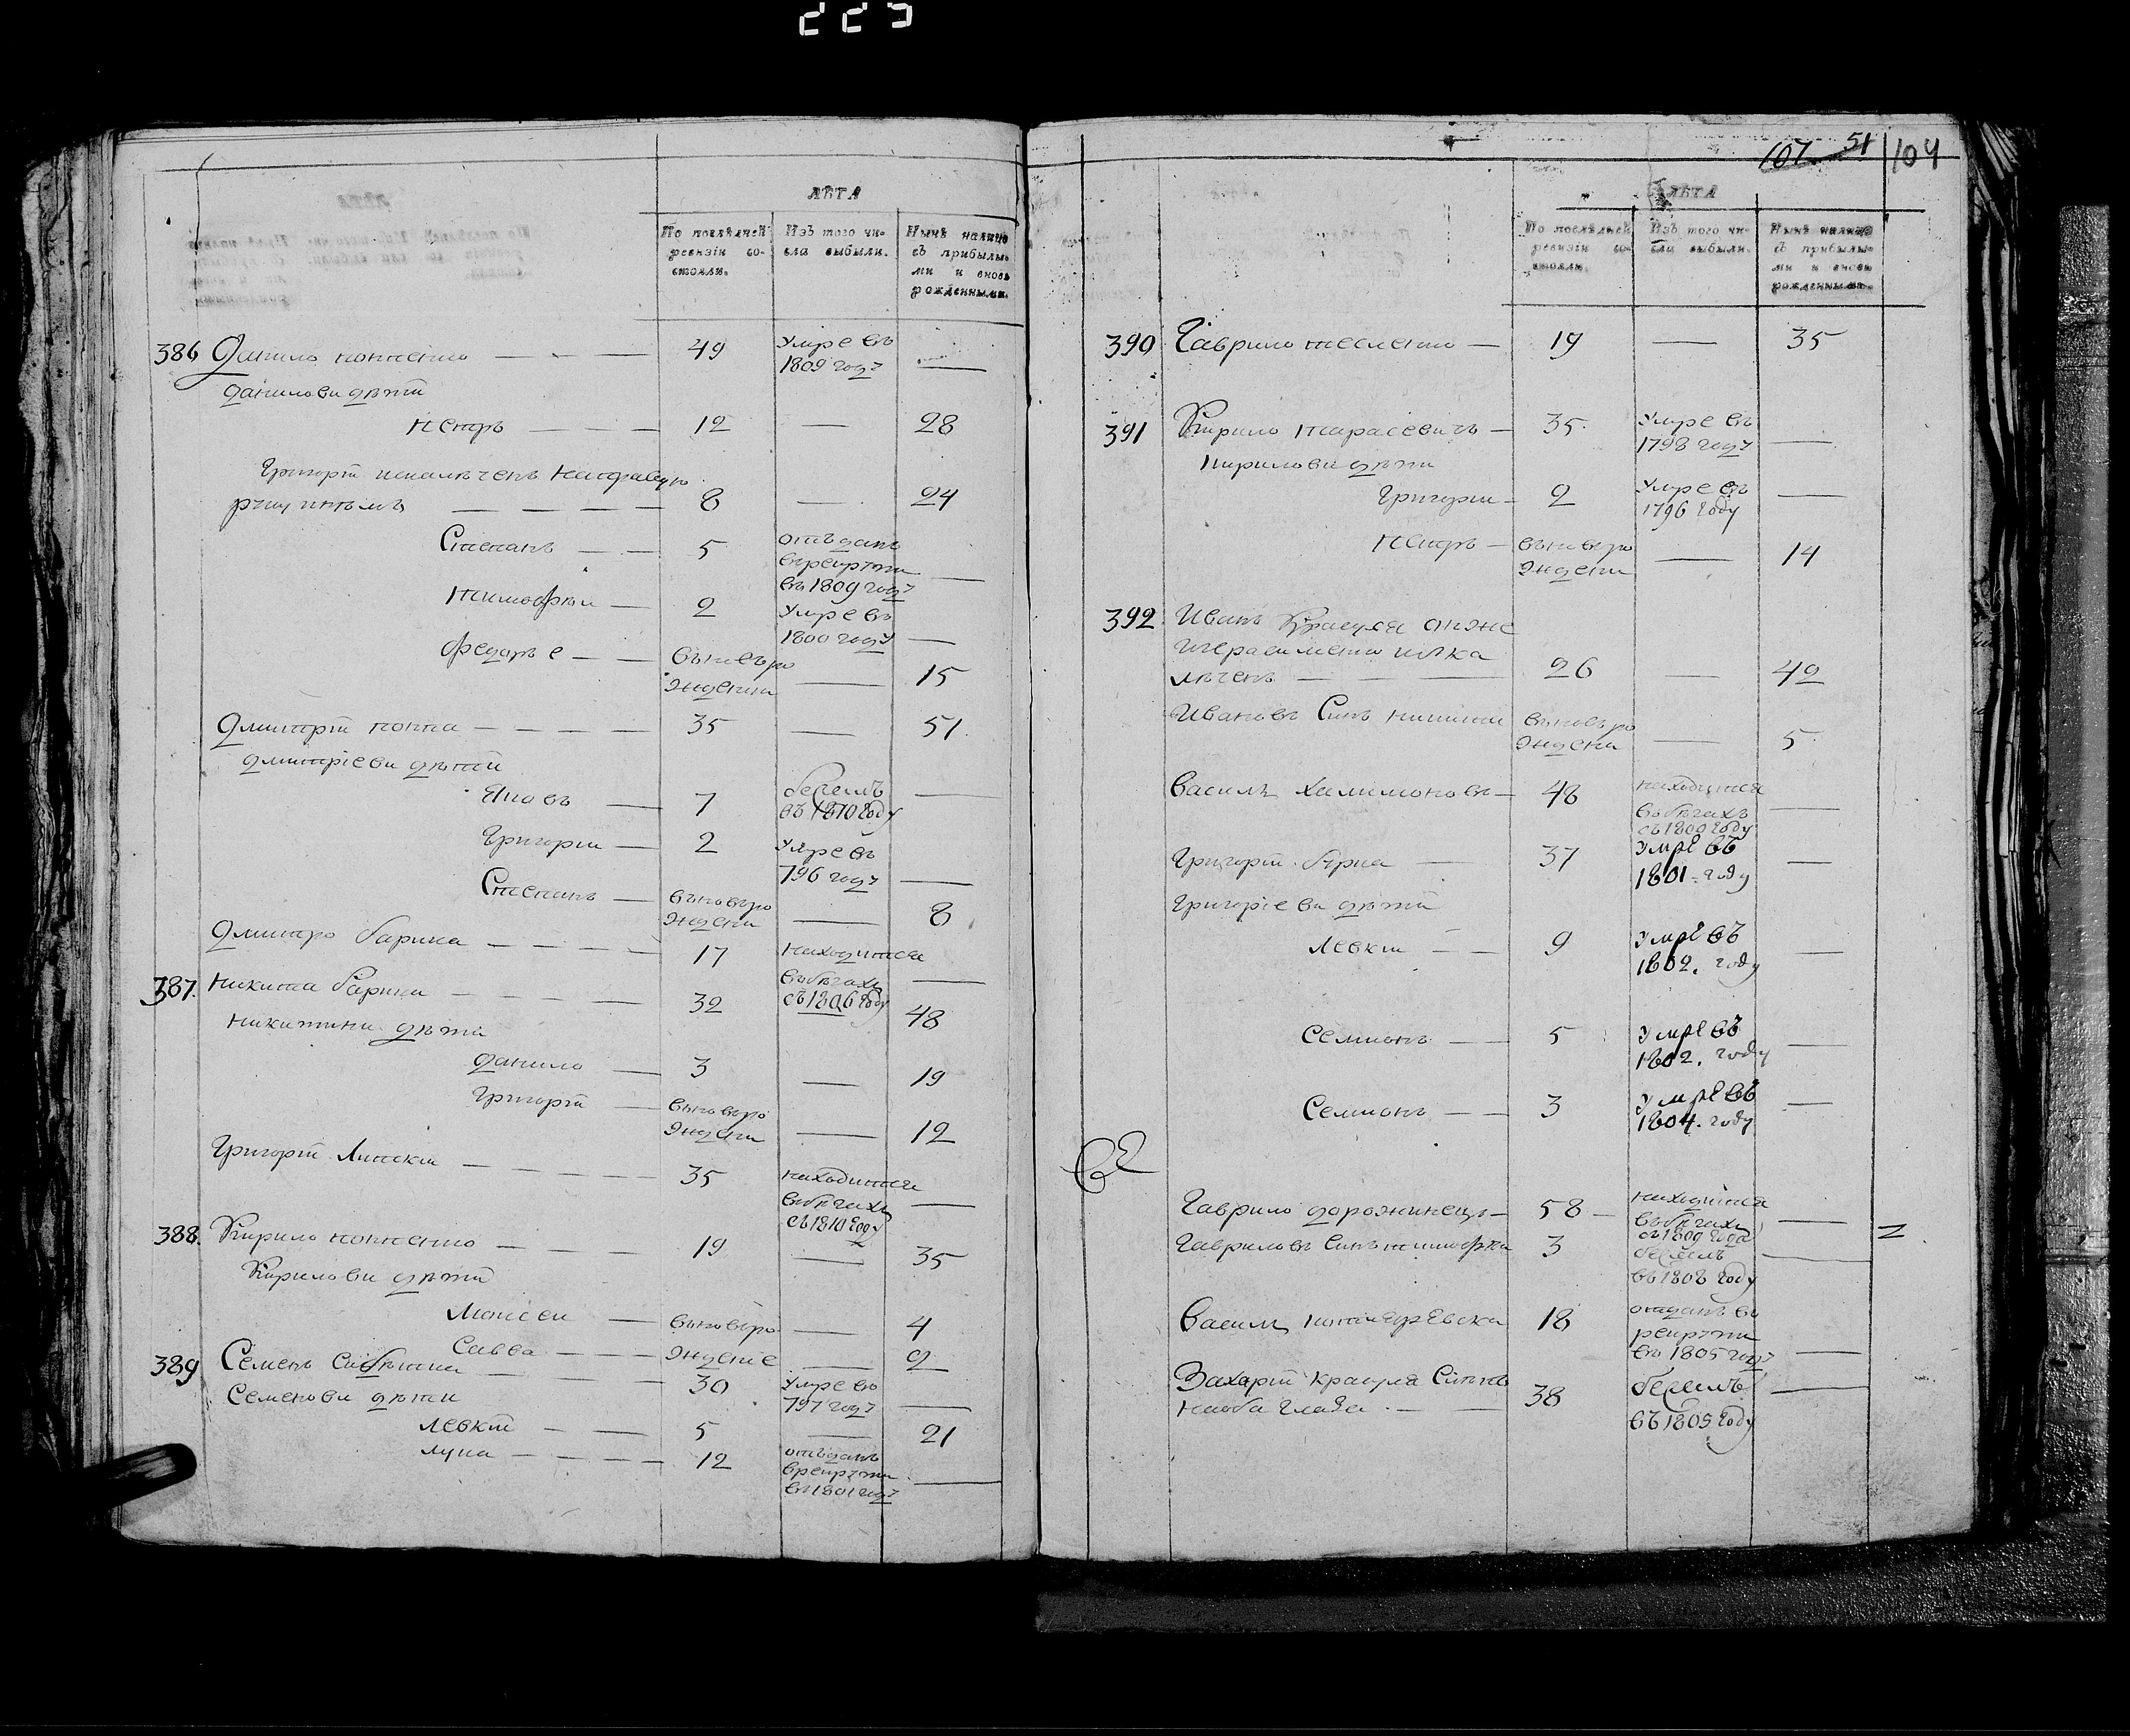 225
ЛѢТА
По послѣдней ревизіи состояли.
Изъ того числа выбыли.
Нынѣ налицо съ прибылыми и вновь рожденными.
386 Данило — — — 49 умре въ
1809 году —
Данилови дѣти
Петръ — — — 12 — 28
Григорій
8 — 24
Степанъ — — 5 отъданъ
в рекруты
въ 1809 году —
Тимофѣй — 2 умре въ
1800 году —
Федоръ — — вновьро
ждений — 15
Дмитрій — — — — 35 — 51
Дмитріеви дѣти
Яковъ — 7 бежелъ
въ 1810 году —
Григорій — 2 умре въ
796 году —
Степанъ — вновьро
ждени — 8
Дмитро — — — — 17 находится
въ бѣгахъ
съ 1806 году —
387. Никита — — — — 32 48
Никитини дѣти
Данило — 3 — 19
Григорій — вновьро
ждени — 12
Григорій Липскій — — — — 35 находится
въ бѣгахъ
съ 1810 году —
388. Кирило — — — 19 — 35
Кирилови дѣти
Моисей — вновьро — 4
Савва — — — ждение — 2
389 Семенъ — — 30 умре въ
797 году —
Семенови дѣти
Левкій — — 5 — 21
Лука — — — — 12 отъданъ
в рекруты
въ 1801 году —
107 51 104
ЛѢТА
По послѣдней ревизіи состояли.
Изъ того числа выбыли.
Нынѣ налицо съ прибылыми и вновь рожденными.
390 Гаврило — 19 — 35
391 Кирило Тарасевичъ — 35. умре въ
1798 году —
Кирилови дѣти
Григорій — 2 умре въ
1796 году —
Петръ — вновьро
ждени — 14
392 Иванъ
— — 26 — 42
Ивановъ Синъ Никита вновьро
ждени — 5
Василь Халимоновъ — 48 находится
въ бѣгахъ
съ 1800 году —
Григорій — 37 умре въ
1801 году —
Григоріеви дѣти
Левкій — — 9 умре въ
1802. году —
Семионъ — — 5 умре въ
1802. году —
Семионъ — — 3 умре въ
1804. году —
Гаврило — 58 — находится
въ бѣгахъ
съ 1809 года —
Гавриловъ Синъ Тимофѣй 3 бежелъ
въ 1808 году —
Василь 18 отданъ въ
рекруты
въ 1805 году —
Захарій Крацуля
— — 38 бежелъ
въ 1805 году —